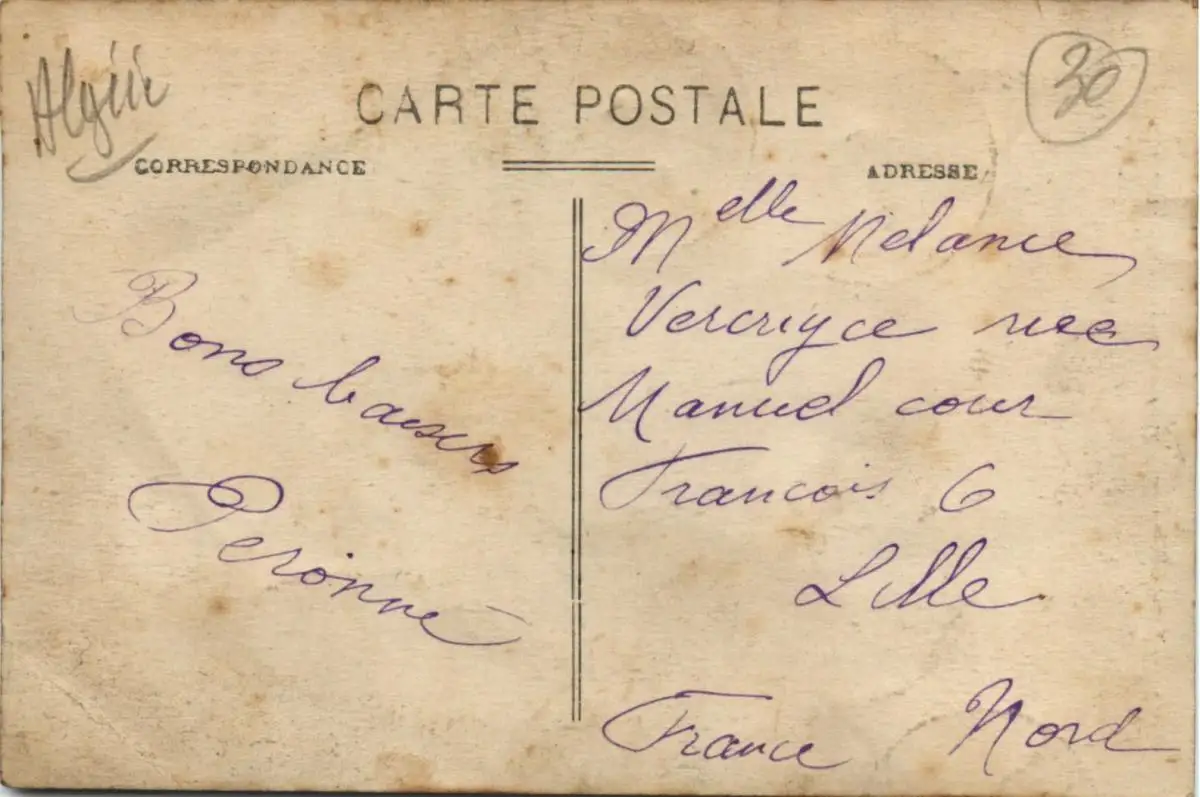 Algérie
30
CARTE POSTALE
CORRESPONDANCE
ADRESSE
Bons baisers
Peronne
Melle Melanie
Vercruyce rue
Manuel cour
Francois 6
Lille
France Nord